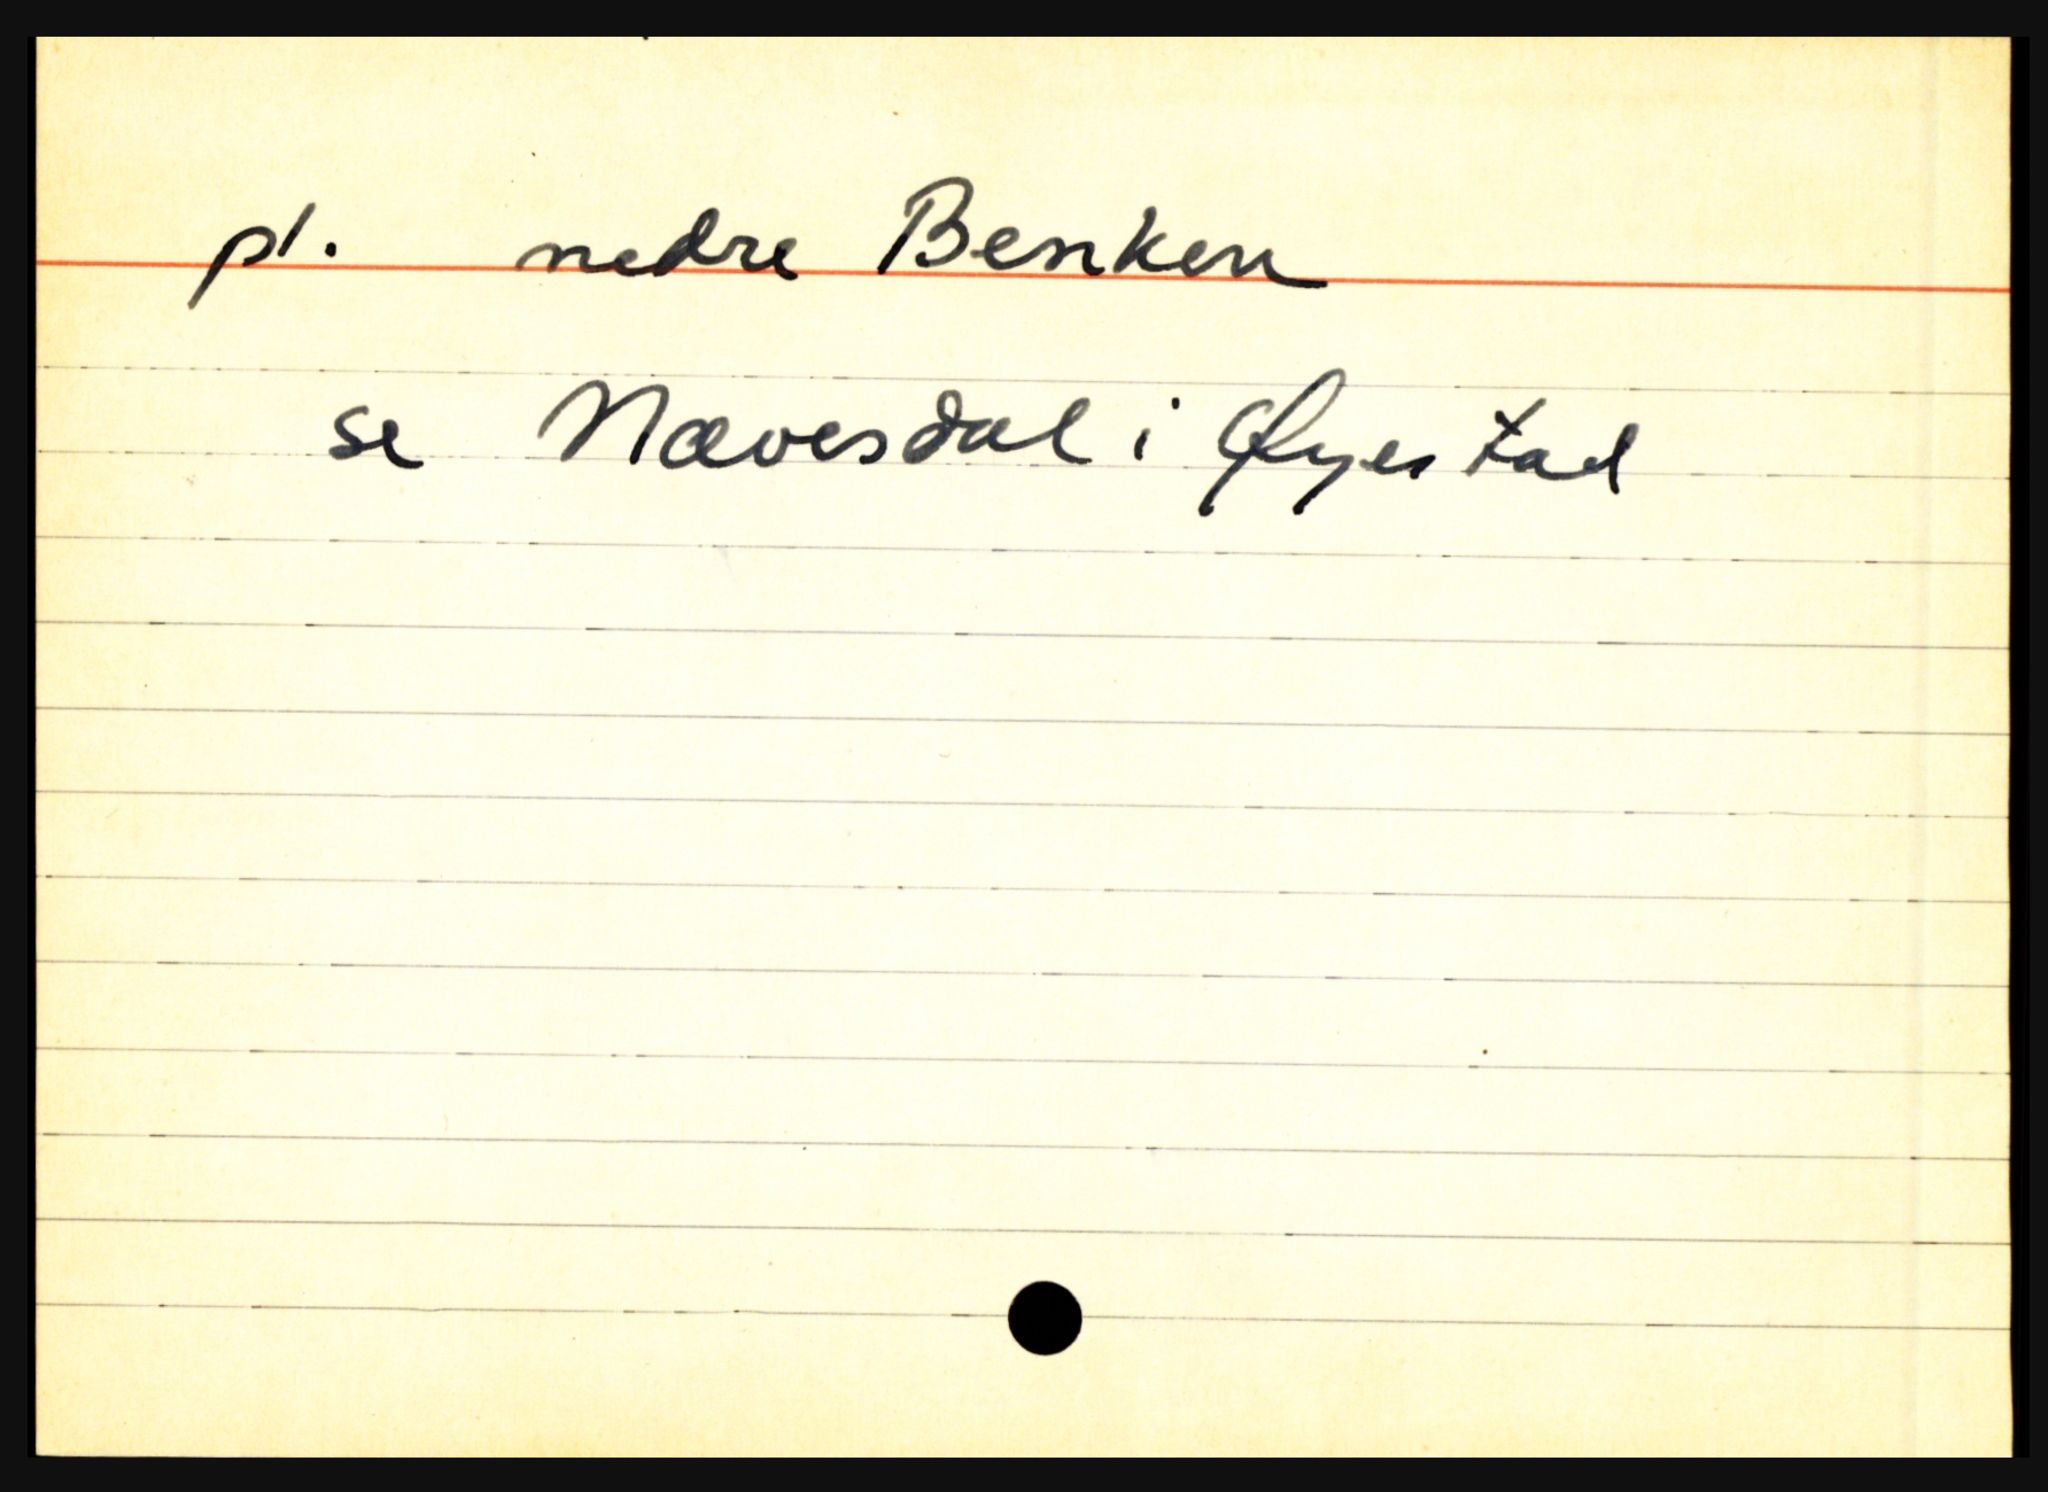 pl. nedre Benken
se Nævesdal i Øyestad